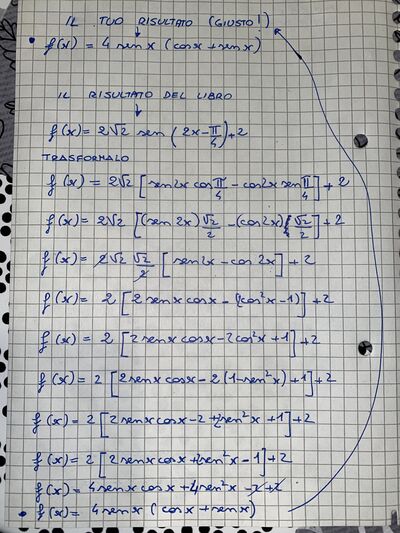 IL TUO RISULTATO (GIUSTO!)
• f(x) = 4 sen x (cos x + sen x)
IL RISULTATO DEL LIBRO
f(x) = 2√2 sen (2x - π/4) + 2
TRASFORMALO
f(x) = 2√2 [sen 2x cos π/4 - cos 2x sen π/4] + 2
f(x) = 2√2 [(sen 2x) √2/2 - (cos 2x) √2/2] + 2
f(x) = 2√2 √2/2 [sen 2x - cos 2x] + 2
f(x) = 2 [2 sen x cos x - (2cos²x - 1)] + 2
f(x) = 2 [2 sen x cos x - 2cos²x + 1] + 2
f(x) = 2 [2 sen x cos x - 2(1 - sen²x) + 1] + 2
f(x) = 2 [2 sen x cos x - 2 + 2sen²x + 1] + 2
f(x) = 2 [2 sen x cos x + 2sen²x - 1] + 2
f(x) = 4 sen x cos x + 4 sen²x - 2 + 2
• f(x) = 4 sen x (cos x + sen x)